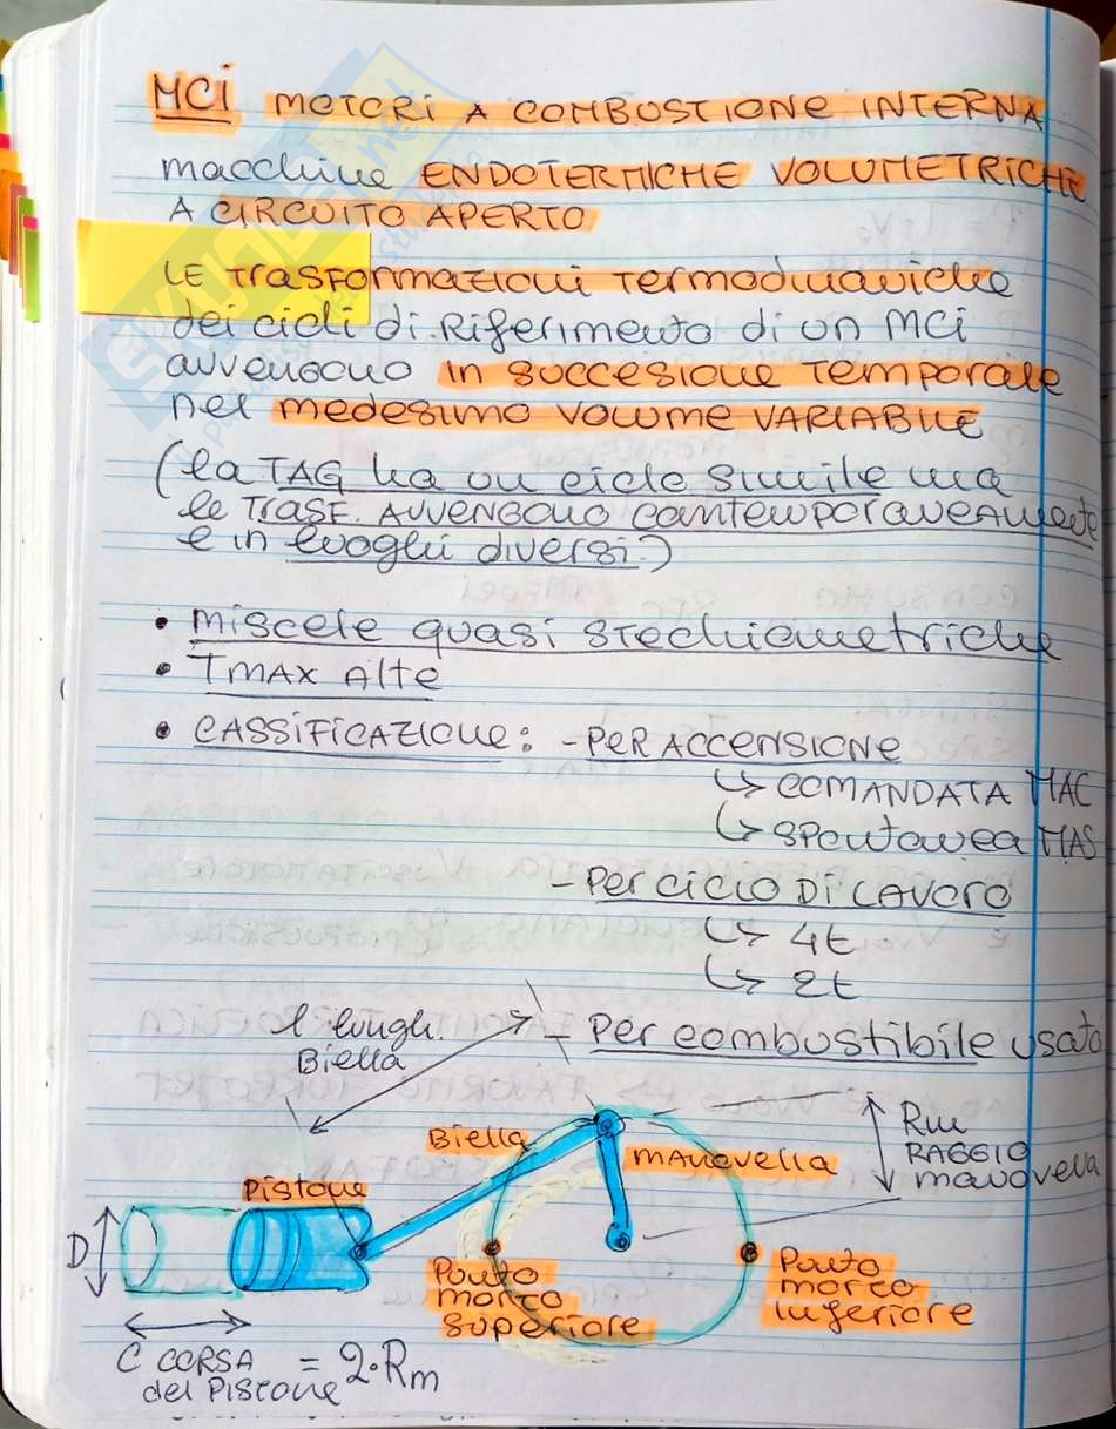 MCI MOTORI A COMBUSTIONE INTERNA
macchine ENDOTERMICHE VOLUMETRICHE
A CIRCUITO APERTO
LE Trasformazioni Termodinamiche
dei cicli di Riferimento di un MCI
avvengono in succesione Temporale
nel medesimo volume VARIABILE
(la TAG ha un ciclo simile ma
le TRASF. AVVENGONO contemporaneamente
e in luoghi diversi.)
• miscele quasi stechiometriche
• TMAX Alte
• CASSIFICAZIONE: - PER ACCENSIONE
↳ COMANDATA MAC
↳ spontanea MAS
- Per ciclo DI LAVORO
↳ 4t
↳ 2t
- Per combustibile usato
l lungh.
Biella
Biella
manovella
Rm
RAGGIO
manovella
Pistone
D
Punto
morto
superiore
Punto
morto
inferiore
C CORSA
del Pistone = 2·Rm